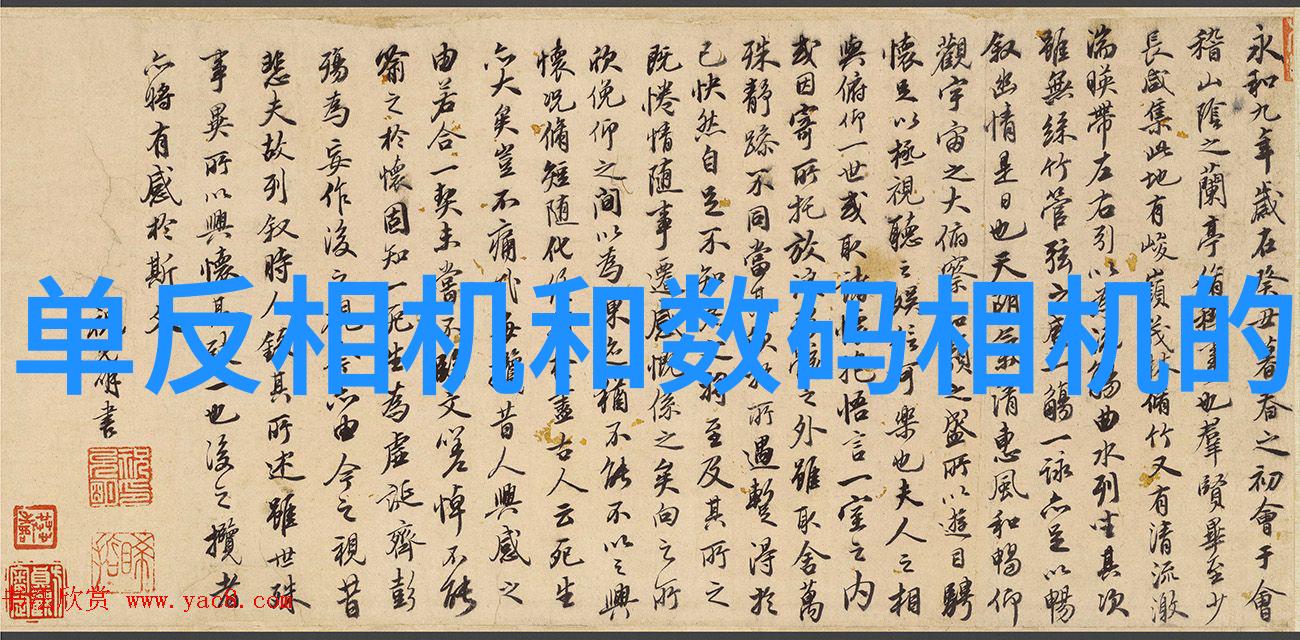 永和九年歲在癸丑暮春之初會于會
稽山陰之蘭亭脩稧事也羣賢畢至少
長咸集此地有峻嶺茂林脩竹又有清流激
湍暎帶左右引以為流觴曲水列坐其次
雖無絲竹管弦之盛一觴一詠亦足以暢
叙幽情是日也天朗氣清惠風和暢仰
觀宇宙之大俯察品類之盛所以遊目騁
懷足以極視聽之娛信可樂也夫人之相
與俯仰一世或取諸懷抱悟言一室之內
或因寄所托放浪形骸之外雖取舍萬
殊静躁不同當其欣於所遇暫得於
己快然自足不知老之將至及其所之
既惓情隨事遷感慨係之矣向之所
欣俛仰之間以為陳迹猶不能不以之興
懷況脩短隨化終期於盡古人云死生
亦大矣豈不痛哉每攬昔人興感之
由若合一契未嘗不臨文嗟悼不能
喻之於懷固知一死生為虛誕齊彭
殤為妄作後之視今亦由今之視昔
悲夫故列叙時人録其所述雖世殊
事異所以興懷其致一也後之攬者
亦將有感於斯文
祝允明書
单反相机和数码相机的
书法欣赏 www.yac8.com